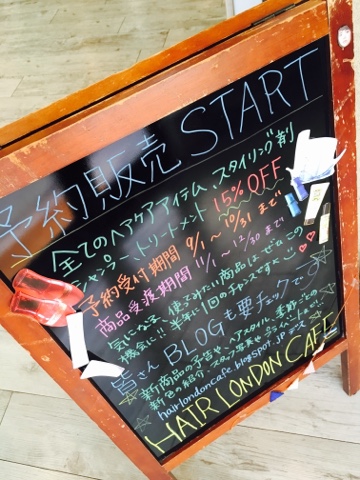 予約販売START
全てのヘアケアアイテム、スタイリング剤
シャンプー、トリートメント 15%OFF
予約受付期間 9/1〜10/31まで
商品受渡期間 11/1〜12/30まで
気になる、使ってみたい商品はぜひこの
機会に!! 半年に1回のチャンスです
皆さんBLOGも要チェックです
新商品の予告や、ヘアスタイル、季節ごとの
新色の紹介
hairlondoncafe.blogspot.jp
HAIR LONDON CAFE